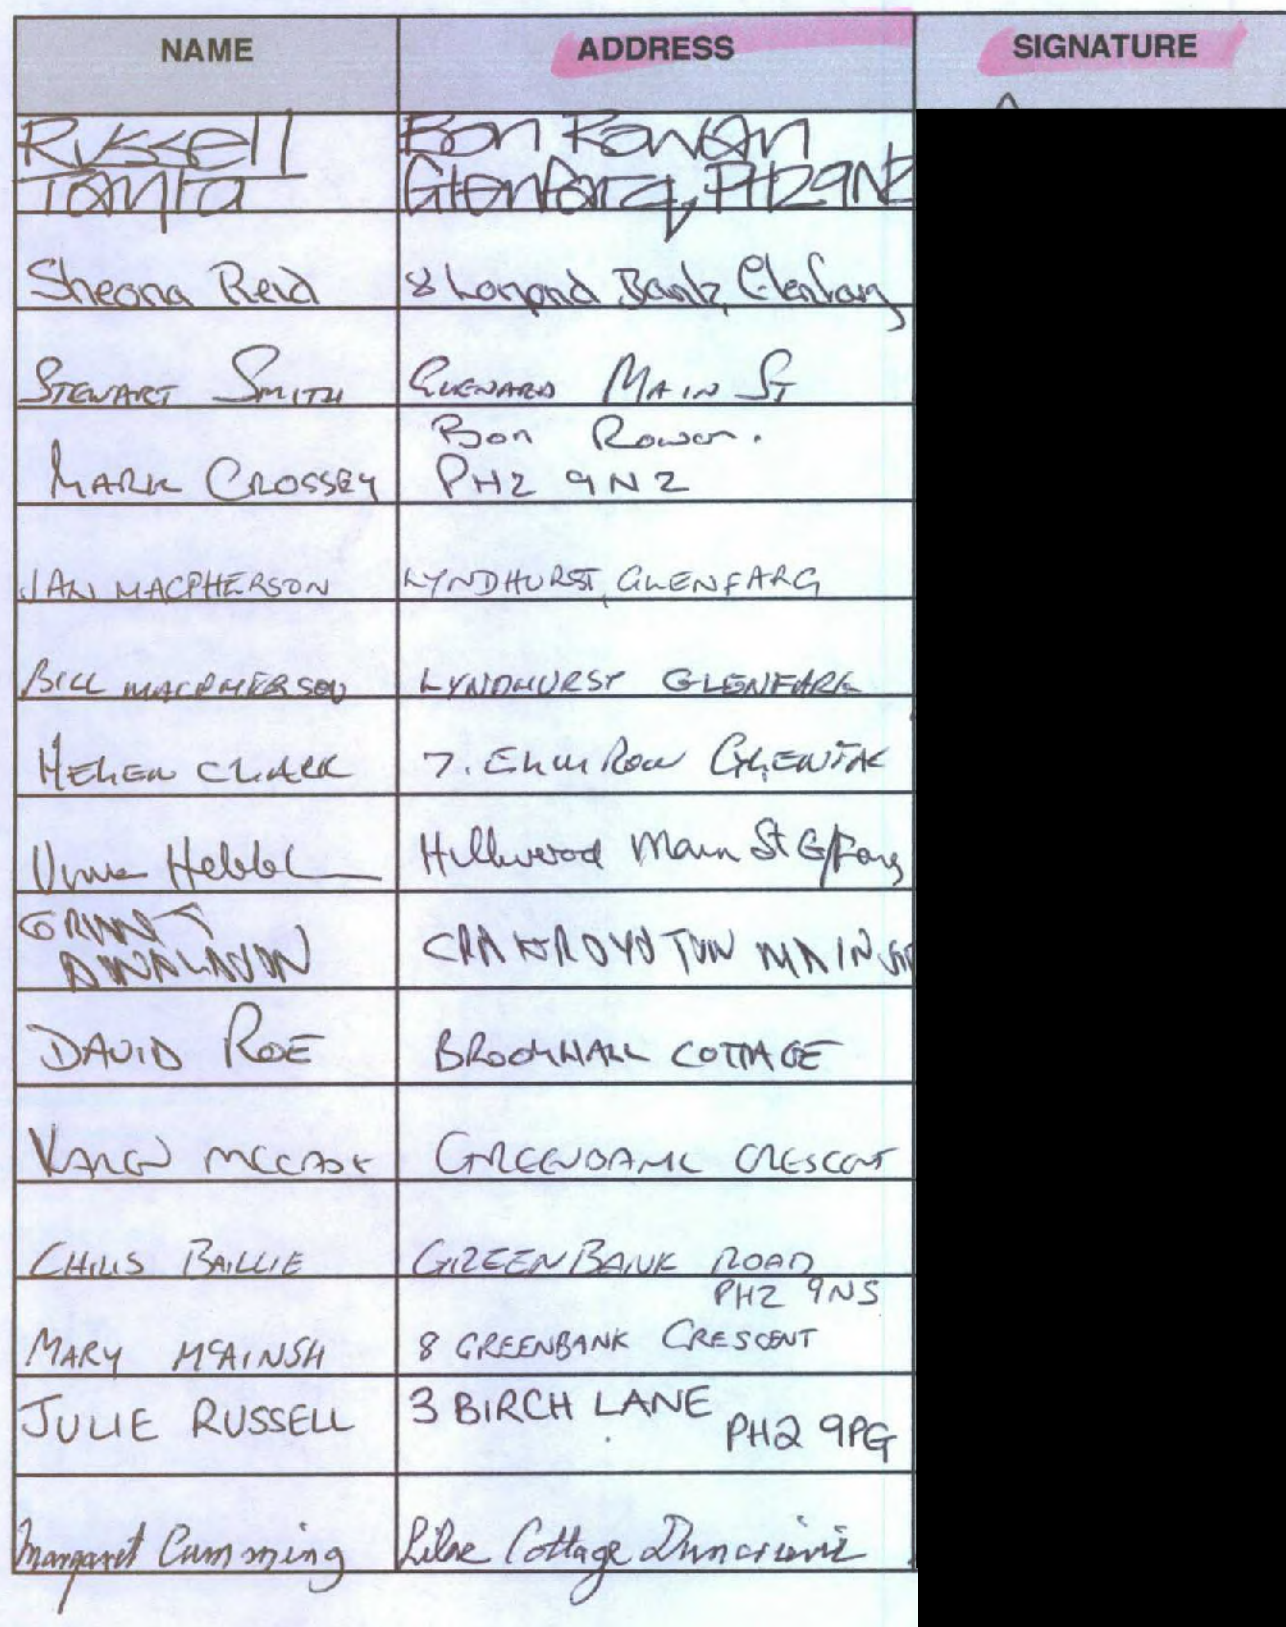 NAME ADDRESS SIGNATURE
Russell Bon Rowan
Glenfarg, PH2 9NZ
Sheona Reid 8 Lomond Bank, Glenfarg
STEWART SMITH MAIN ST
Bon Rowan.
MARK CROSSEY PH2 9NZ
IAN MACPHERSON LYNDHURST, GLENFARG
BILL MACPHERSON LYNDHURST GLENFARG
HELEN CLARK 7. Elm Row
Hillwood Main St G/Farg
GRANT MAIN ST
DAVID ROE BROOMHALL COTTAGE
KAREN CRESCENT
CHRIS BAILLIE GREENBANK ROAD
PH2 9NS
MARY McAINSH 8 GREENBANK CRESCENT
JULIE RUSSELL 3 BIRCH LANE
PH2 9PG
Margaret Cumming Cottage Duncrievie